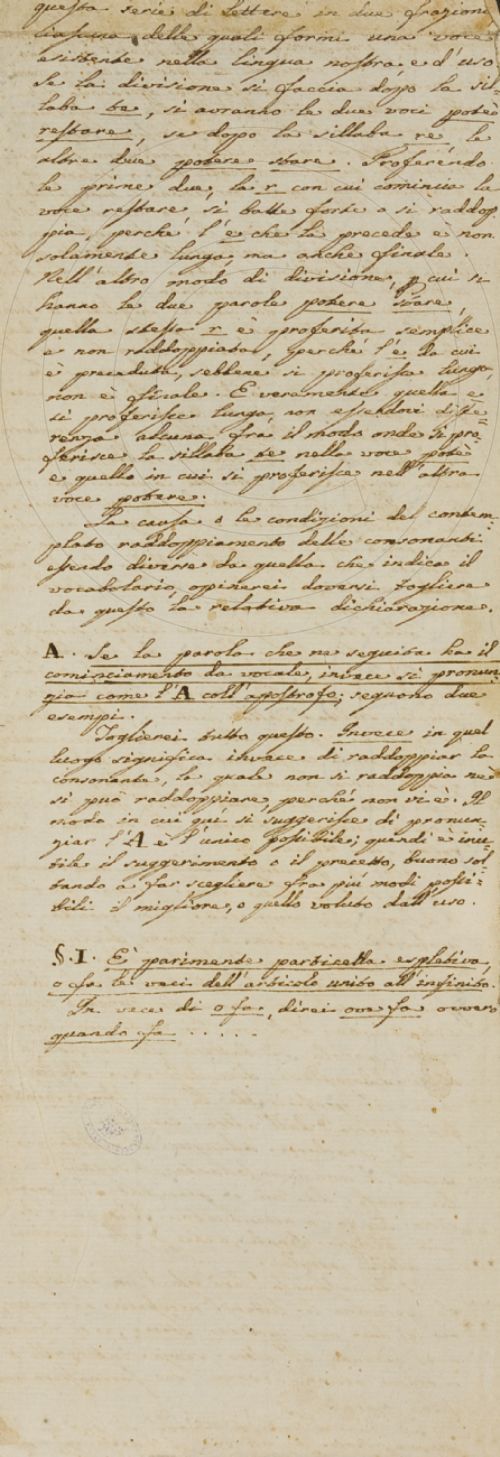 questa serie di lettere in due frazioni
ciascuna delle quali formi una voce
esistente nella lingua nostra, e d'uso
Se la divisione si faccia dopo la sil-
laba te, si avranno le due voci potè
restare, se dopo la sillaba re le
altre due potere stare. Proferendo
le prime due, la r con cui comincia la
voce restare si batte forte o si raddop
pia, perché l'e che la precede è non
solamente lunga, ma anche finale.
Nell'altro modo di divisione, p cui si
hanno le due parole potere stare,
quella stessa r è proferita semplice
e non raddoppiata, perché l'e da cui
è preceduta, sebbene si proferisca lunga,
non è finale. E veramente quella e
si proferisce lunga, non essendovi diffe-
renza alcuna fra il modo onde si pro-
ferisce la sillaba te nella voce potè
e quello in cui si proferisce nell'altra
voce potere.
La causa o le condizioni del contem-
plato raddoppiamento delle consonanti
essendo diverse da quella che indica il
vocabolario, opinerei doversi togliere
da questo la relativa dichiarazione.
A. Se la parola che ne seguita ha il
cominciamento da vocale, invece si pronun-
zia come l'A coll'apostrofo; seguono due
esempi.
Toglierei tutto questo. Invece in quel
luogo significa invece di raddoppiar la
consonante, la quale non si raddoppia nè
si può raddoppiare perché non vi è. Il
modo in cui qui si suggerisce di pronun-
ziar l'A è l'unico possibile; quindi è inu-
tile il suggerimento o il precetto, buono sol
tando a far scegliere fra più modi possi-
bili il migliore, o quello voluto dall'uso.
§.I. È parimente particella espletiva,
o fa le veci dell'articolo unito all'infinito.
In vece di o fa, direi ove fa ovvero
quando fa . . . . .